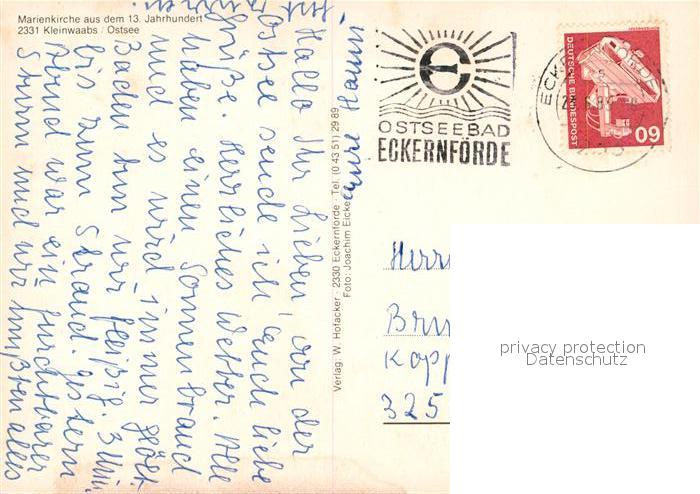 Marienkirche aus dem 13. Jahrhundert
2331 Kleinwaabs / Ostsee
Hallo Ihr Lieben, an der
Ostsee sende ich euch liebe
Grüße. Herrliches Wetter. Alle
haben einen Sonnenbrand
und es wird immer
Baden tun wir fleißig. 3 Min.
bis zum Strand. Gestern
Abend war ein furchtbarer
Sturm und wir mußten alles
fest
Verlag: W. Hofacker · 2330 Eckernförde · Tel. (0 43 51) 29 89
Foto: Joachim Eicke
OSTSEEBAD
ECKERNFÖRDE
ECK
DEUTSCHE BUNDESPOST
60
Herr
Bru
Kopp
325
privacy protection
Datenschutz